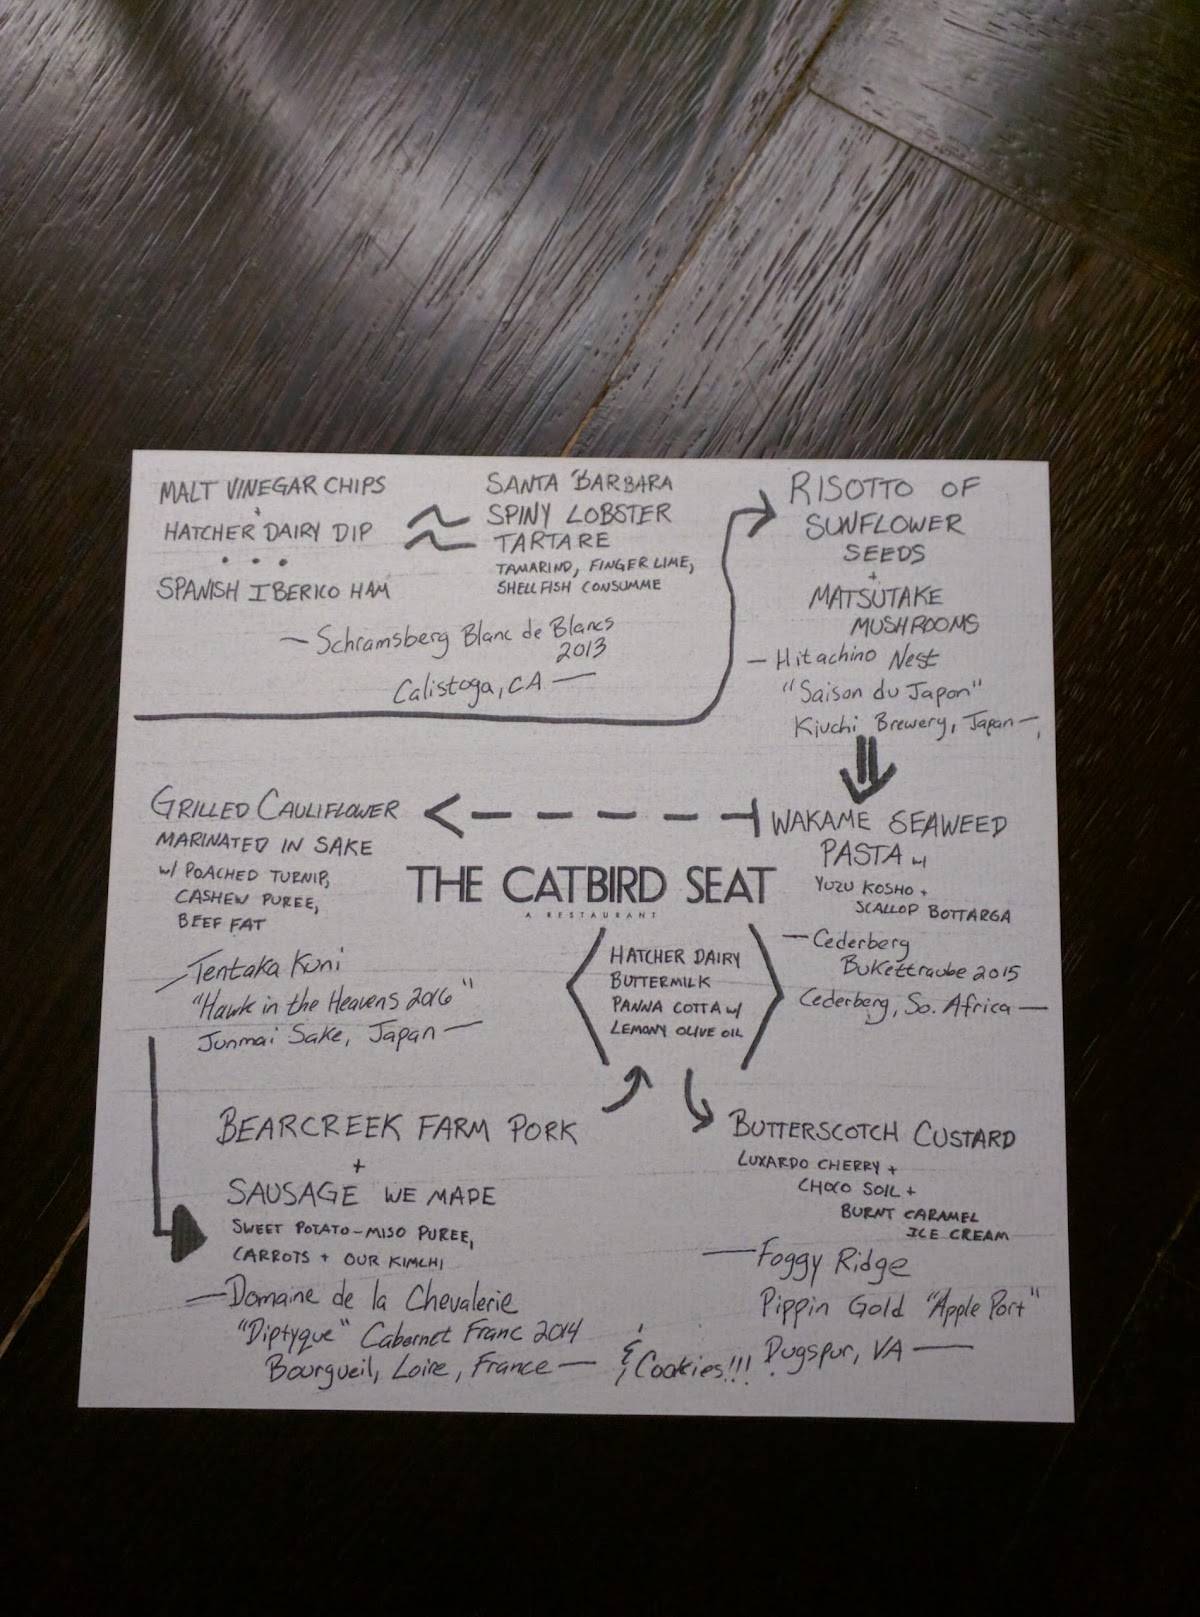 MALT VINEGAR CHIPS
+
HATCHER DAIRY DIP
...
SPANISH IBERICO HAM
SANTA BARBARA
SPINY LOBSTER
TARTARE
TAMARIND, FINGER LIME,
SHELLFISH CONSUMME
— Schramsberg Blanc de Blancs
2013
Calistoga, CA —
RISOTTO OF
SUNFLOWER
SEEDS
+
MATSUTAKE
MUSHROOMS
— Hitachino Nest
"Saison du Japon"
Kiuchi Brewery, Japan —
WAKAME SEAWEED
PASTA w/
YUZU KOSHO +
SCALLOP BOTTARGA
— Cederberg
Bukettraube 2015
Cederberg, So. Africa —
GRILLED CAULIFLOWER
MARINATED IN SAKE
w/ POACHED TURNIP,
CASHEW PUREE,
BEEF FAT
— Tentaka Kuni
"Hawk in the Heavens 2016"
Junmai Sake, Japan —
THE CATBIRD SEAT
A RESTAURANT
BEARCREEK FARM PORK
+
SAUSAGE WE MADE
SWEET POTATO-MISO PUREE,
CARROTS + OUR KIMCHI
— Domaine de la Chevalerie
"Diptyque" Cabernet Franc 2014
Bourgueil, Loire, France —
HATCHER DAIRY
BUTTERMILK
PANNA COTTA w/
LEMONY OLIVE OIL
BUTTERSCOTCH CUSTARD
LUXARDO CHERRY +
CHOCO SOIL +
BURNT CARAMEL
ICE CREAM
— Foggy Ridge
Pippin Gold "Apple Port"
Dugspur, VA —
& Cookies!!!